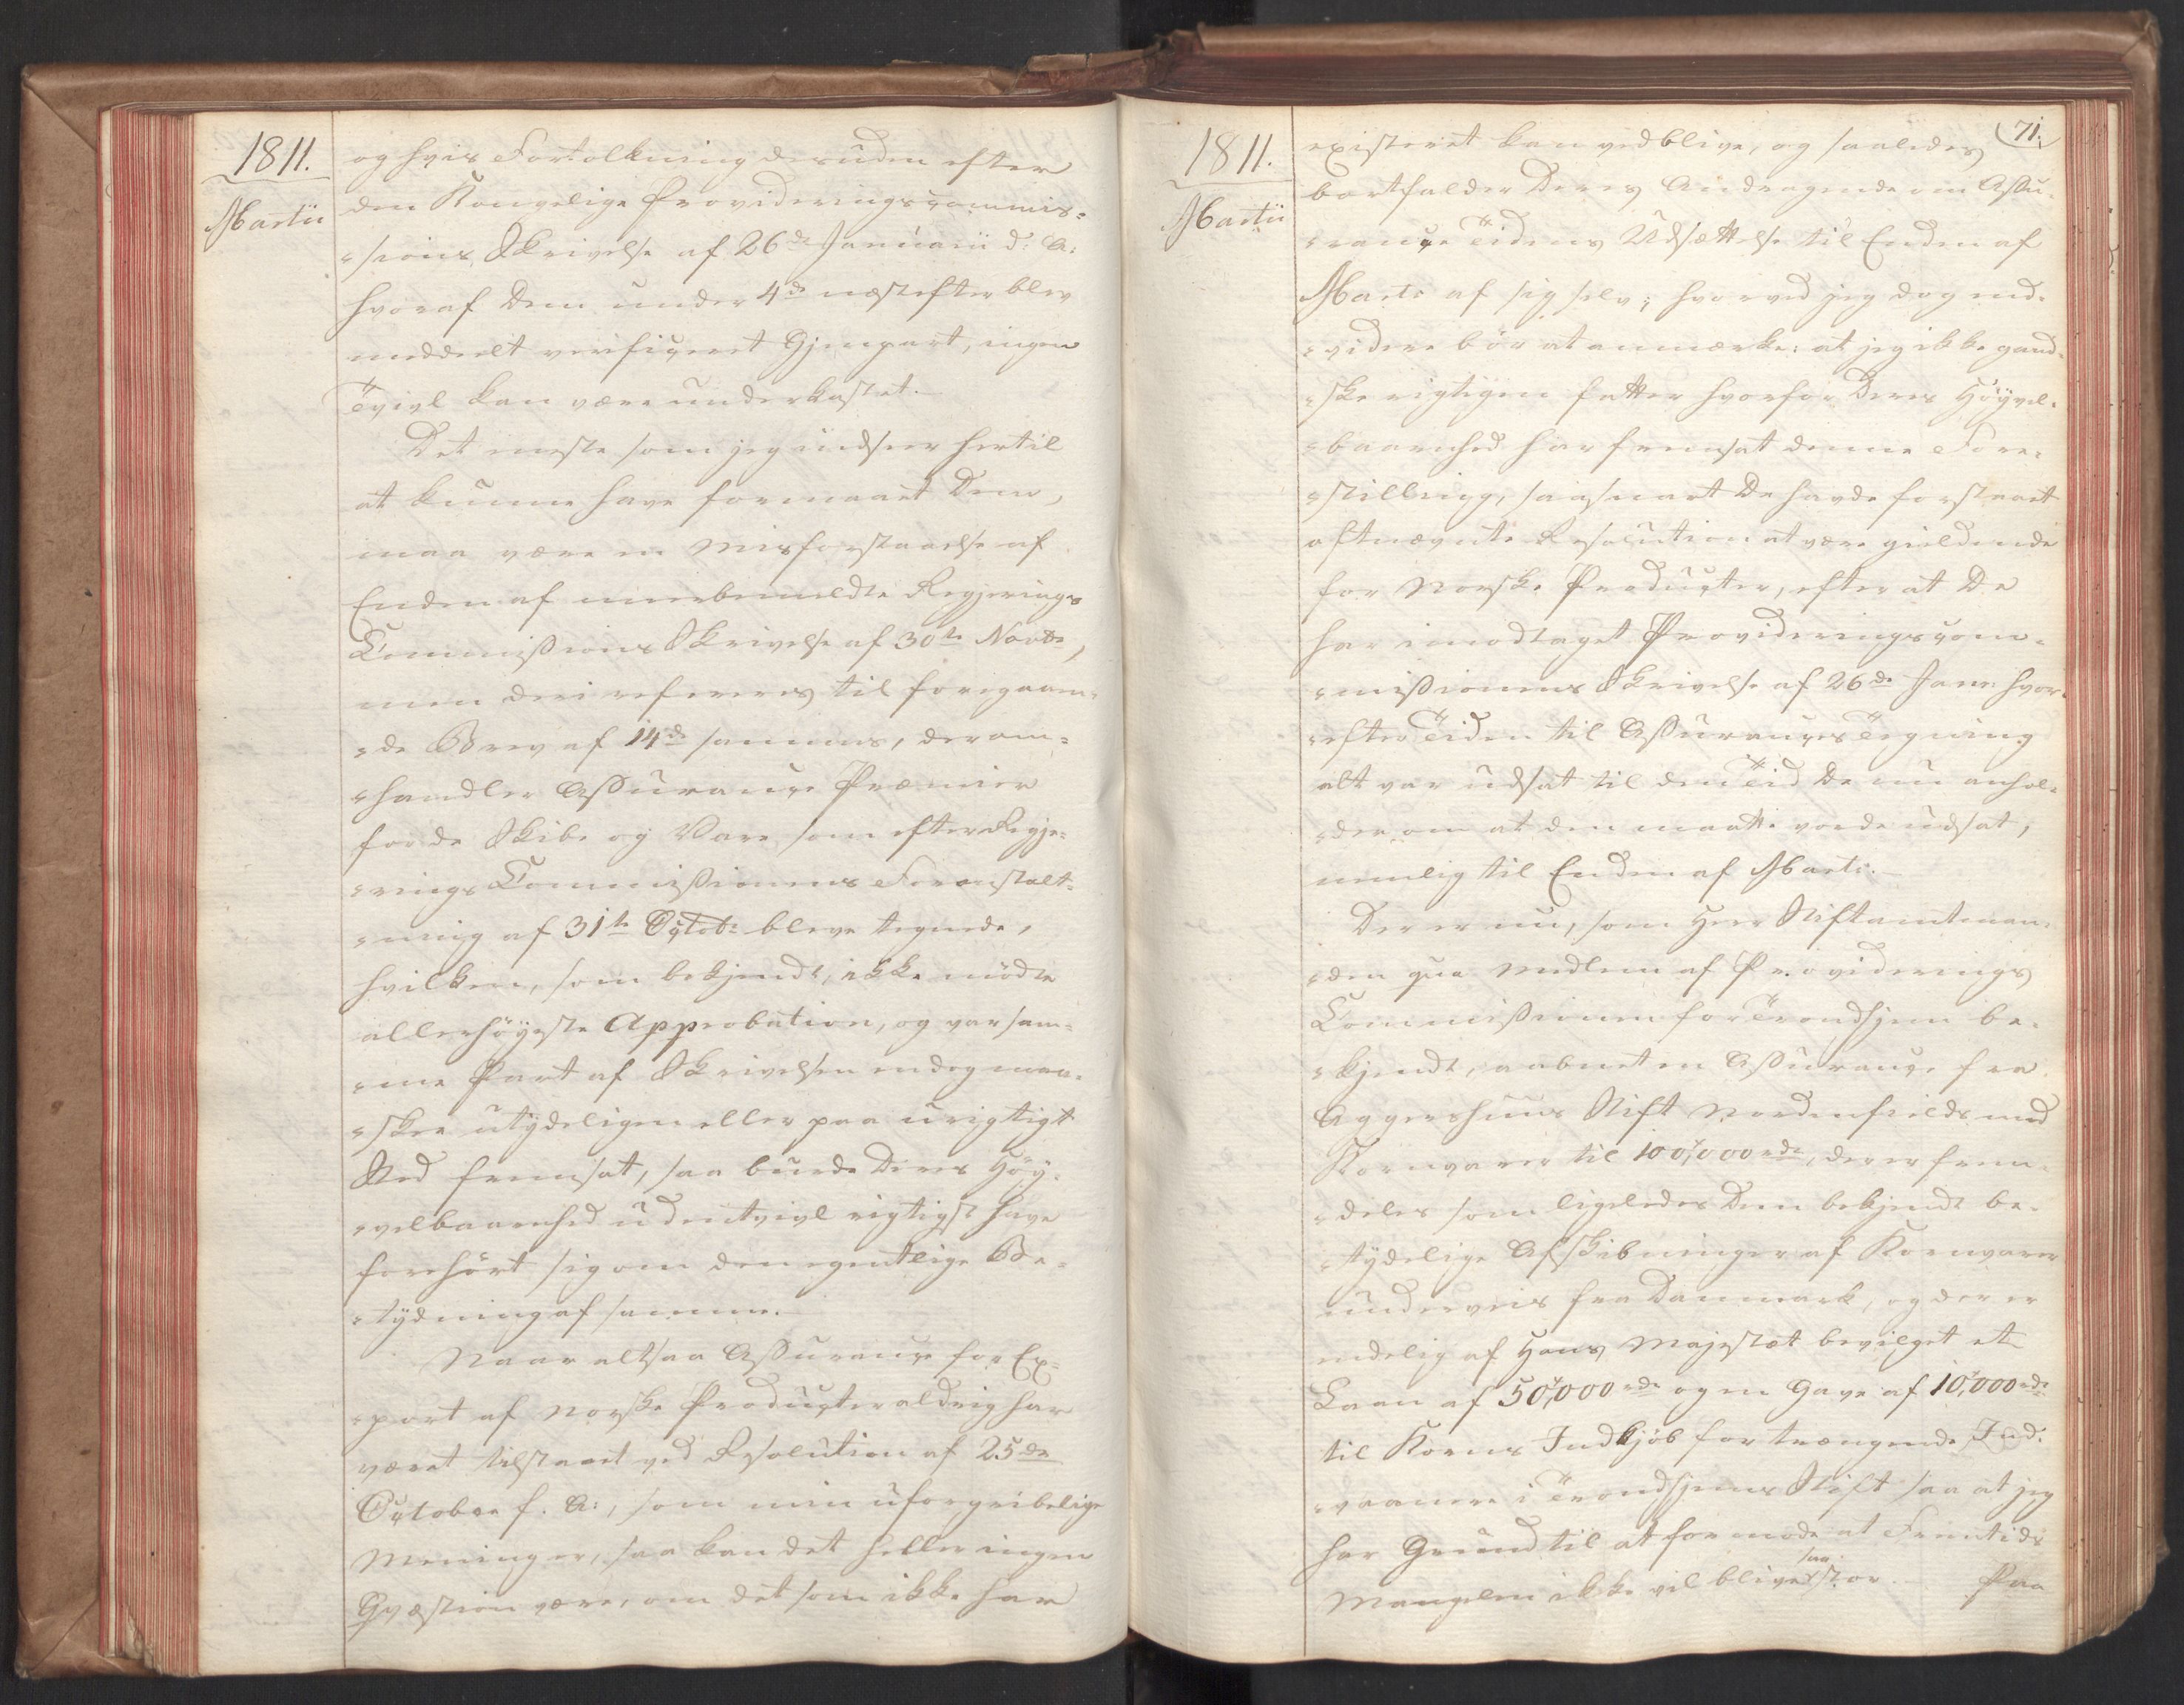 1811.
Martii
og hvis Fortolkning desuden efter
den Kongelige Provideringscommis-
sions Skrivelse af 26de Januarii d: A:
hvoraf Dem under 4de næstefter blev
meddeelt verificeret Gjenpart, ingen
Tvivl kan være underkastet.
Det meste som jeg indseer hertil
at kunne have formaaet Dem,
maa være en Misforstaaelse af
Enden af meerbemeldte Regjerings
Commissions Skrivelse af 30te Novbr,
men deri refereres til foregaaen-
de Brev af 14de samme, der om-
handler Assurance Præmier
for de Skibe og Vare som efter Regje-
rings Commissionens Foranstalt-
ning af 31te Octob: bleve tegnede,
hvilken, som bekjendt, ikke mødte
allerhöyeste Approbation, og var sam-
me Part af Skrivelsen endog maa-
skee utydeligen eller paa urigtigt
Sted fremsat, saa burde Deres Höy-
velbaarenhed udentvivl rigtigst have
forehört sig om den egentlige Be-
tydning af samme.
Naar altsaa Assurance for Ex-
port af Norske Producter aldrig har
været tilstaaet ved Resolution af 25de
October f. A:, som min uforgribelige
Mening er, saa kan det heller ingen
Qvæstion være, om det som ikke har
71.
1811.
Martii
existeret kan vedblive, og saaledes
bortfalder Deres Andragende om Assu-
rance Tidens Udsættelse til Enden af
Marts af sig selv; hvorved jeg dog end-
videre bör at anmærke: at jeg ikke gand-
ske rigtigen fatter hvorfor Deres Höyvel-
baarenhed har fremsat denne Fore-
stilling, saasnart De havde forstaaet
oftnævnte Resolution at være gieldende
for Norske Producter, efter at De
har imodtaget Provideringscom-
missionens Skrivelse af 26de Janr: hvor-
efter Tiden til Assurances Tegning
alt var udsat til den Tid De nu anhol-
der om at den maatte vorde udsat,
nemlig til Enden af Marts.
Der er nu, som Herr Stiftamtman-
den qua Medlem af Providerings
Commissionen for Trondhjem be-
kjendt, aabnet en Assurance fra
Aggershuus Stift Nordenfields med
Kornvarer til 100,000 rdr, der er frem-
deles som ligeledes Dem bekjendt be-
tydelige Afskibninger af Kornvarer
underveis fra Danmark, og der er
endelig af Hans Majestæt bevilget et
Laan af 50,000 rdr og en Gave af 10,000 rdr
til Korns Indkjöb for trængende Ind-
vaanere i Trondhjems Stift saa at jeg
har Grund til at formode at Fremtids
Mangelen ikke vil blive saa stor.
Paa